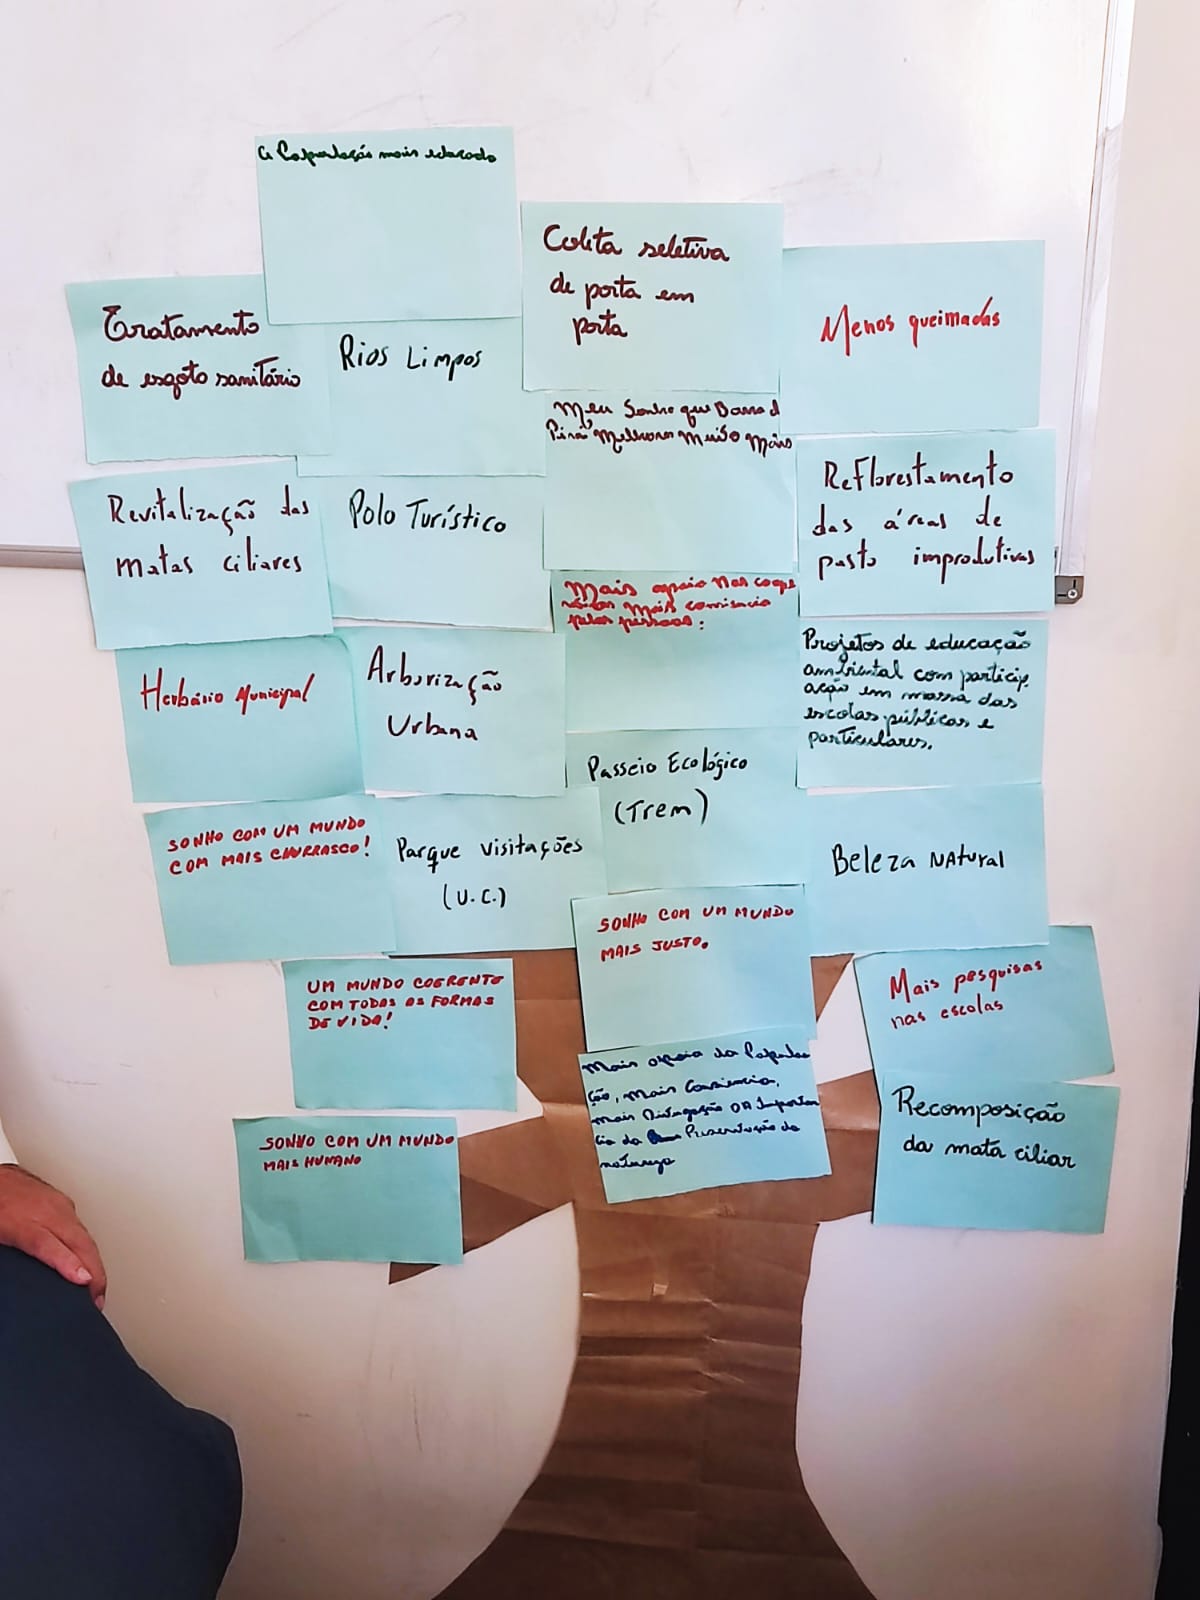 a População mais educado
Coleta seletiva
de porta em
porta
Menos queimadas
Tratamento
de esgoto sanitário
Rios Limpos
Meu Sonho que Barra d
Piraí Melhorar Muito Mais
Reflorestamento
das áreas de
pasto improdutivas
Revitalização das
matas ciliares
Polo Turístico
Mais apoio nas
mais
pelas pessoas:
Projetos de educação
ambiental com particip.
ação em massa das
escolas públicas e
particulares.
Herbário Municipal
Arborização
Urbana
Passeio Ecológico
(Trem)
SONHO COM UM MUNDO
COM MAIS CHURRASCO!
Parque visitações
(U.C.)
Beleza NAtural
SONHO COM UM MUNDO
MAIS JUSTO.
UM MUNDO COERENTE
COM TODAS AS FORMAS
DE VIDA!
Mais pesquisas
nas escolas
Mais apoio da Popula
ção, mais Consiencia,
mais Divugação DA Importan
cia da Preservação da
natureza
Recomposição
da mata ciliar
SONHO COM UM MUNDO
MAIS HUMANO